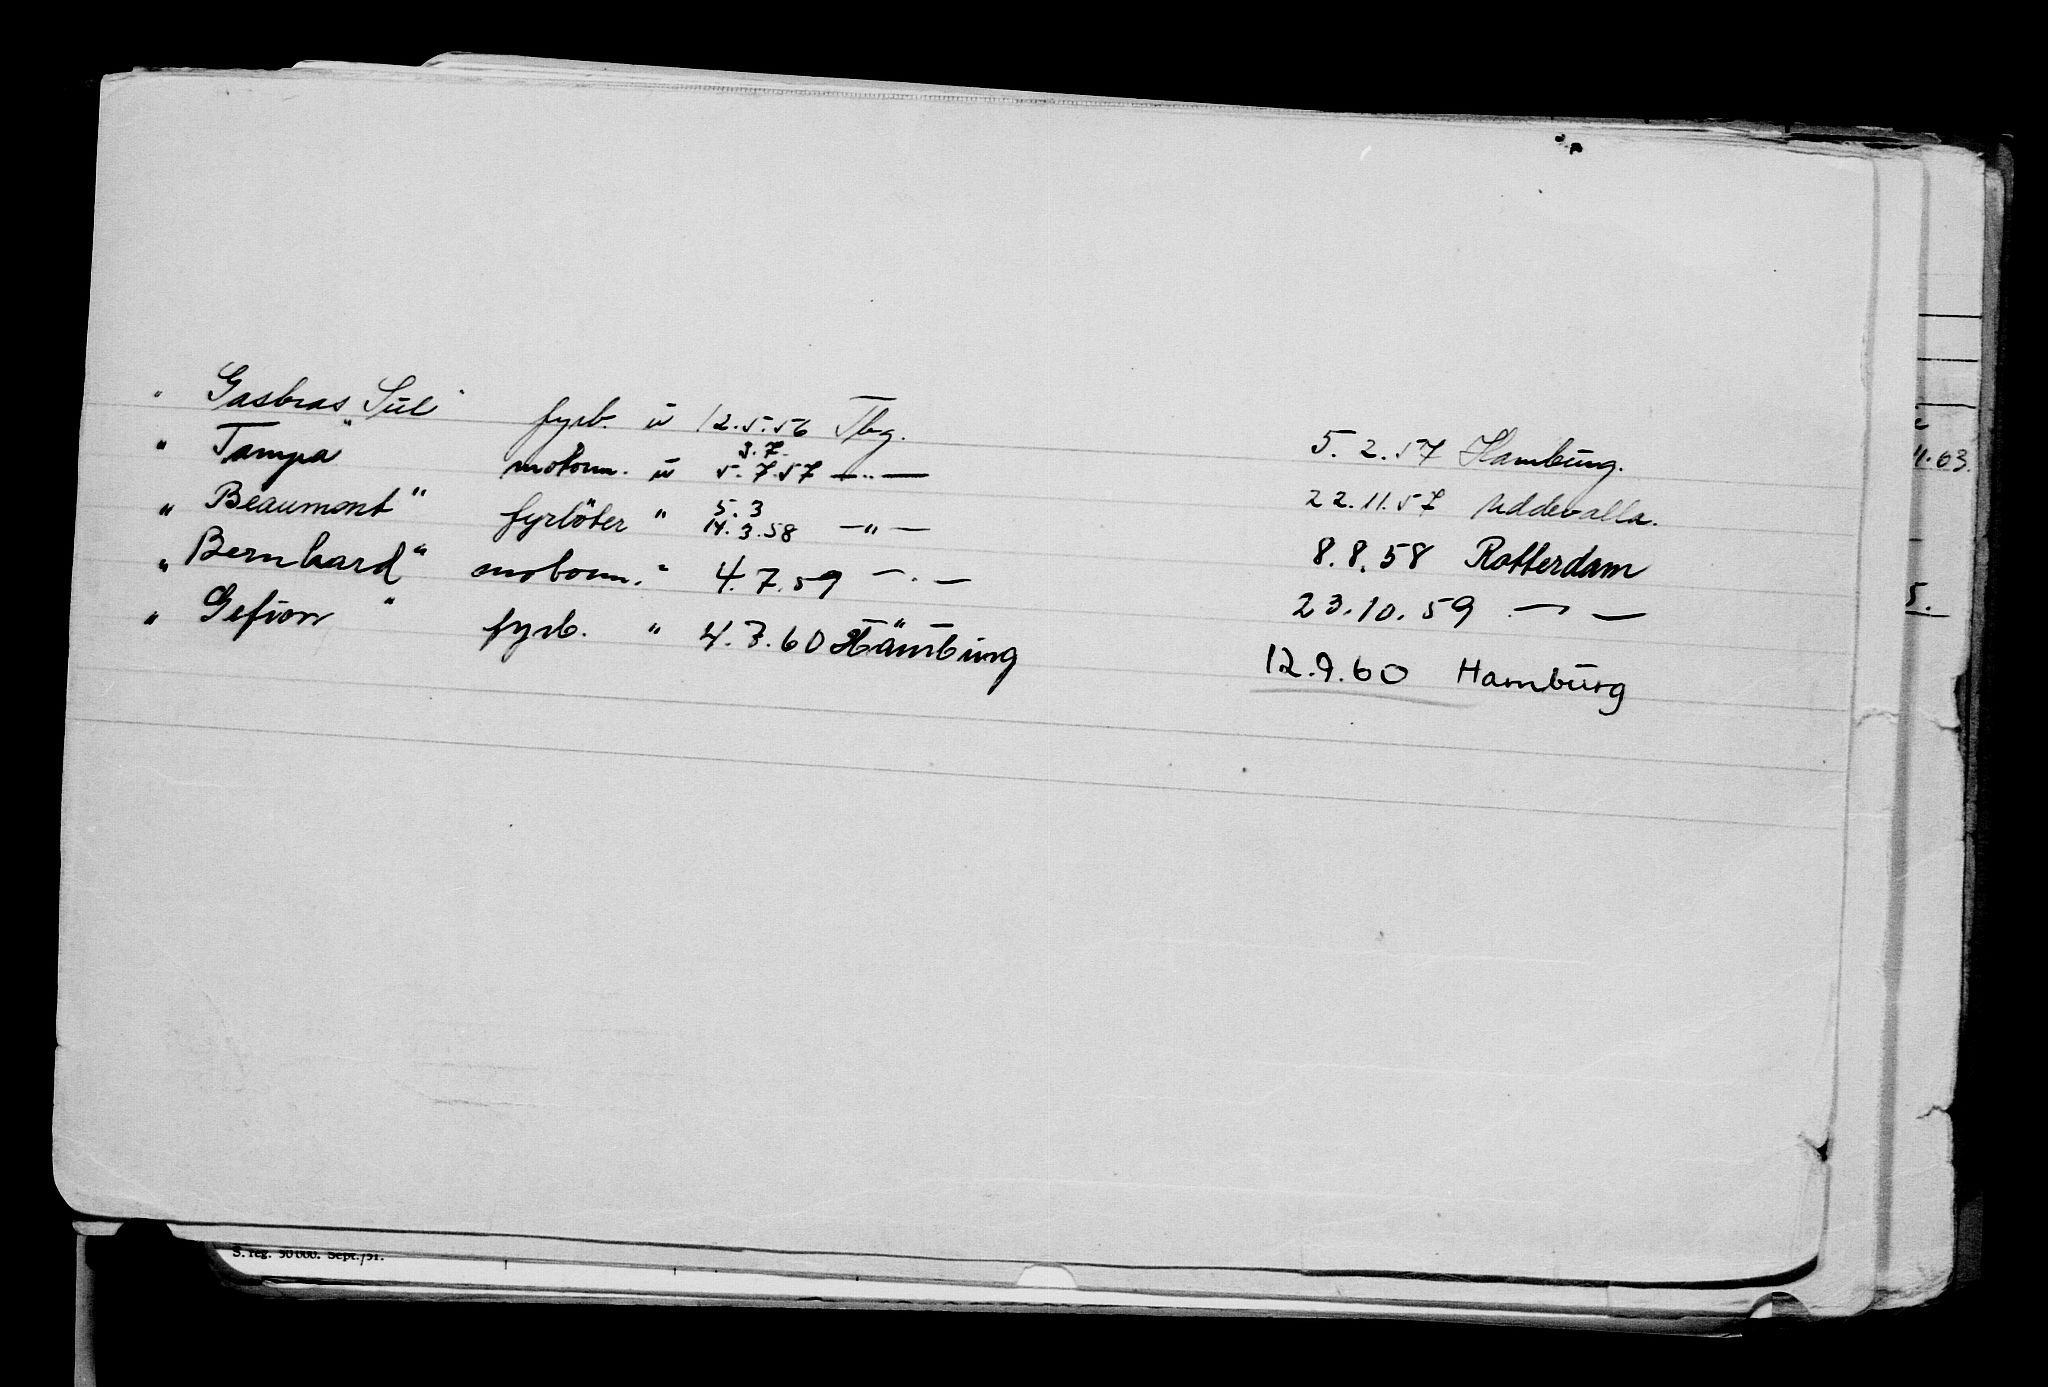 " Gasbras Sul" fyrb. u 12.5.56 Tbg. 5.2.57 Hamburg.
3.7.
" Tampa" motorm. u 5.7.57 —"— 22.11.57 Uddevalla.
5.3
" Beaumont" fyrböter " 14.3.58 —"— 8.8.58 Rotterdam
" Bernhard" motorm. " 4.7.59 —"— 23.10.59 —"—
" Gefion " fyrb. " 4.3.60 Hamburg 12.9.60 Hamburg
11.63.
5.
S. reg. 50 000. Sept./51.